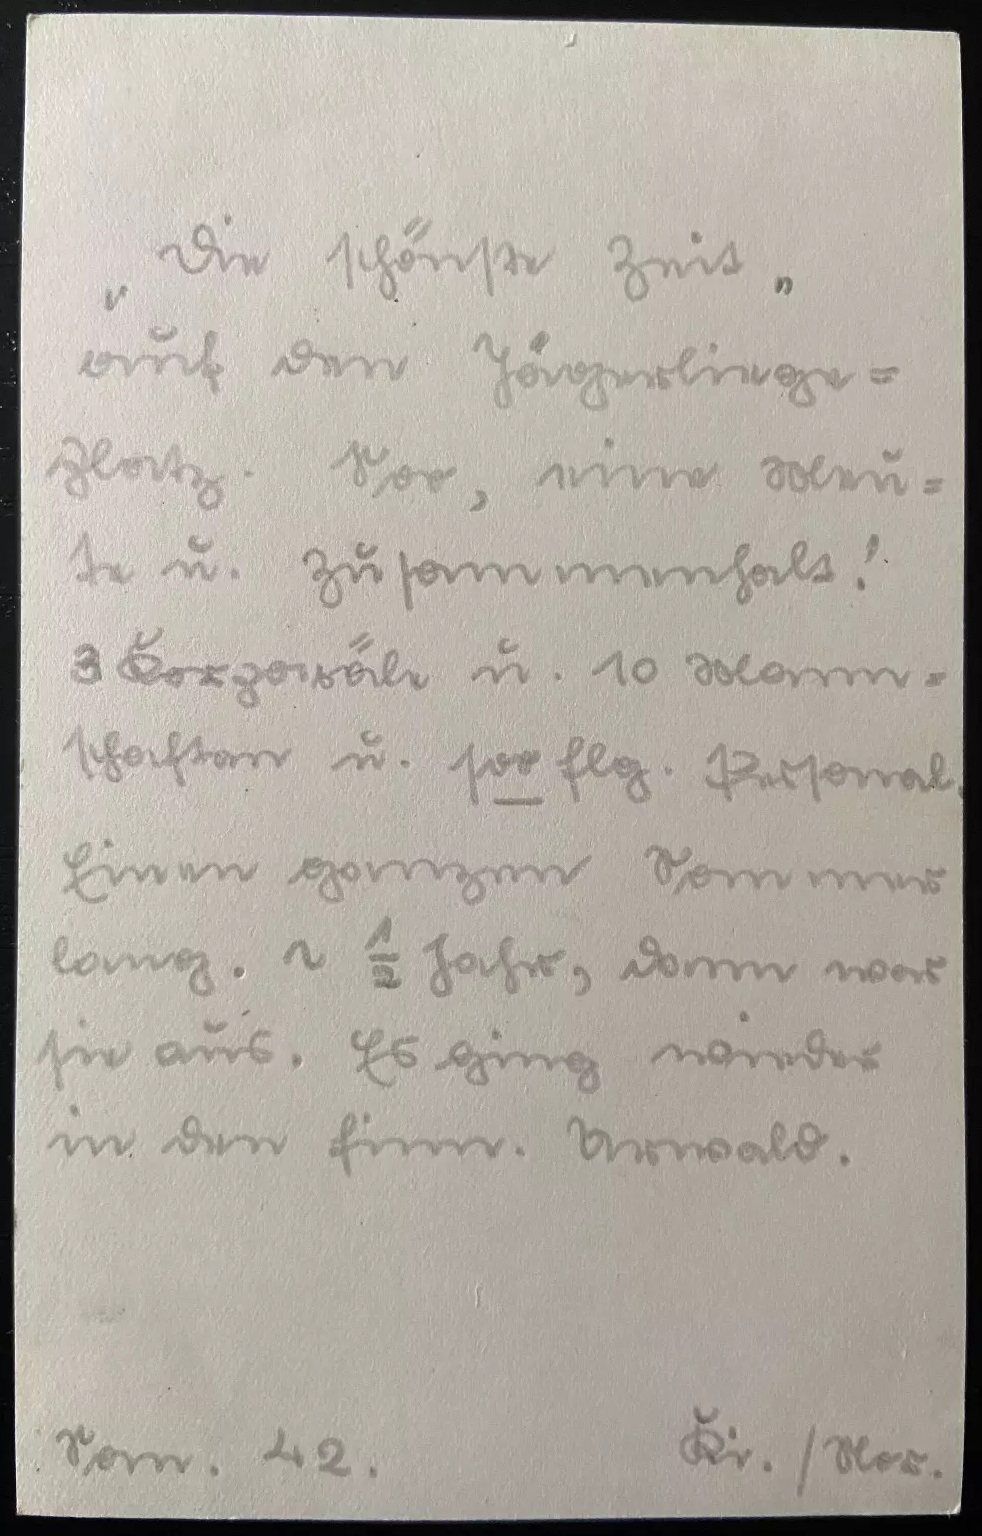 „Die schönste Zeit"
auf dem Jägerliege=
platz. Soo, eine Meu=
te u. Zusammenhalt!
3 Korporäle u. 10 Mann=
schaften u. soo flg. Personal.
Einen ganzen Sommer
lang. ~ ½ Jahr, dann war
sie aus. Es ging wieder
in den finn. Urwald.
Som. 42.
Kir. / Nor.